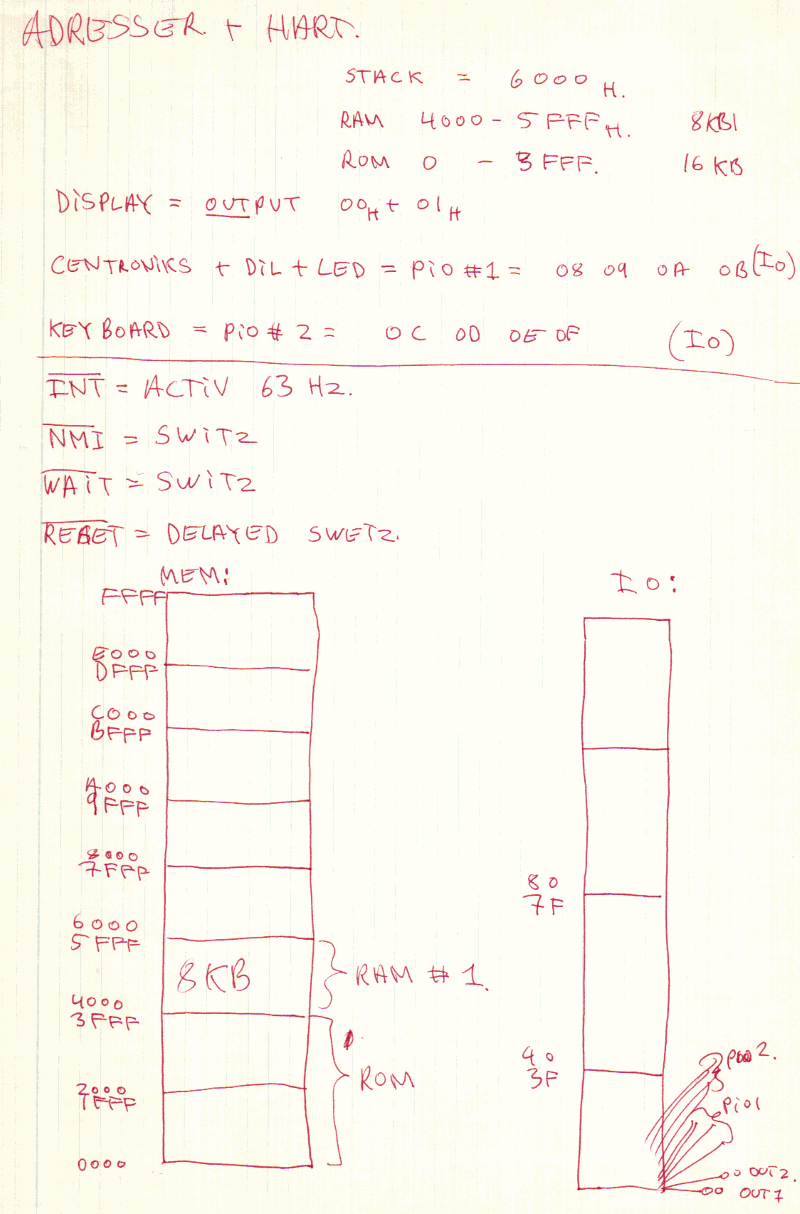 ADRESSER + HART.
STACK = 6000 H.
RAM 4000 - 5FFF H. 8KB!
ROM 0 - 3FFF. 16 KB
DISPLAY = OUTPUT 00H + 01H
CENTRONIKS + DIL + LED = PIO #1 = 08 09 0A 0B (IO)
KEYBOARD = PIO # 2 = 0C 0D 0E 0F (IO)
INT = ACTIV 63 HZ.
NMI = SWITZ
WAIT = SWITZ
RESET = DELAYED SWETZ.
MEM:
FFFF
E000
DFFF
C000
BFFF
A000
9FFF
8000
7FFF
6000
5FFF
8KB
RAM # 1.
4000
3FFF
ROM
2000
1FFF
0000
IO:
80
7F
40
3F
PIO 2.
PIO1
00 OUT2.
00 OUT1